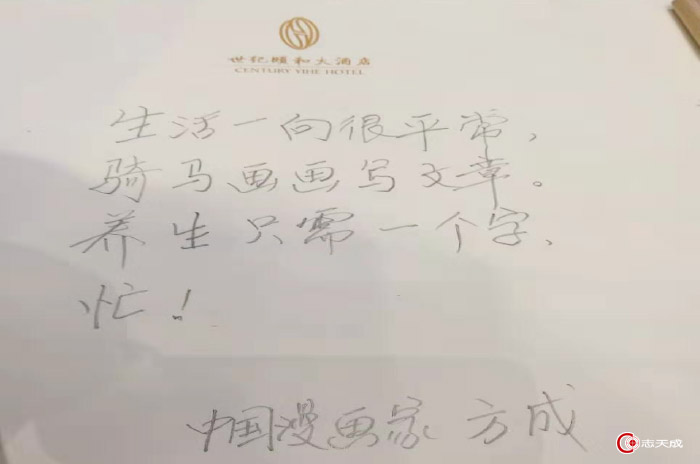 世纪颐和大酒店
CENTURY YIHE HOTEL
生活一向很平常，
骑马画画写文章。
养生只需一个字、
忙！
中国漫画家 方成
志天成